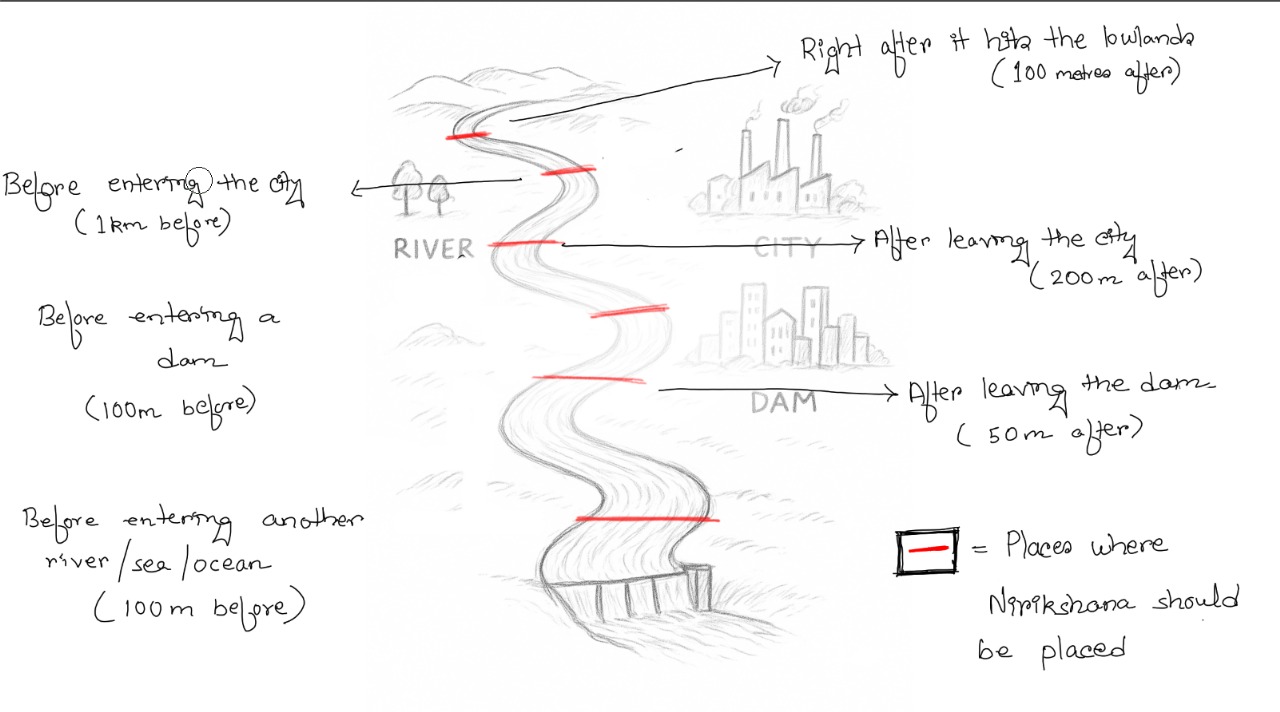 Right after it hits the lowlands
(100 metres after)
Before entering the city
(1km before)
RIVER
CITY
After leaving the city
(200m after)
Before entering a
dam
(100m before)
DAM
After leaving the dam
(50m after)
Before entering another
river/sea/ocean
(100m before)
= Places where
Nirikshana should
be placed